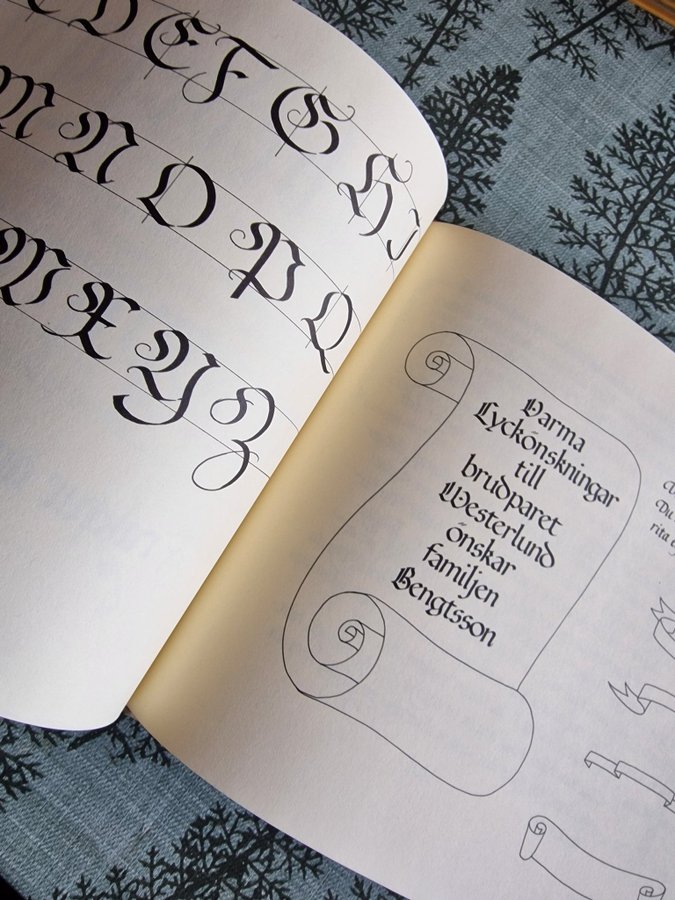 C D E F G H
M N O P Q
W X Y Z
Varma
Lyckönskningar
till
brudparet
Westerlund
önskar
familjen
Bengtsson
Du
rita